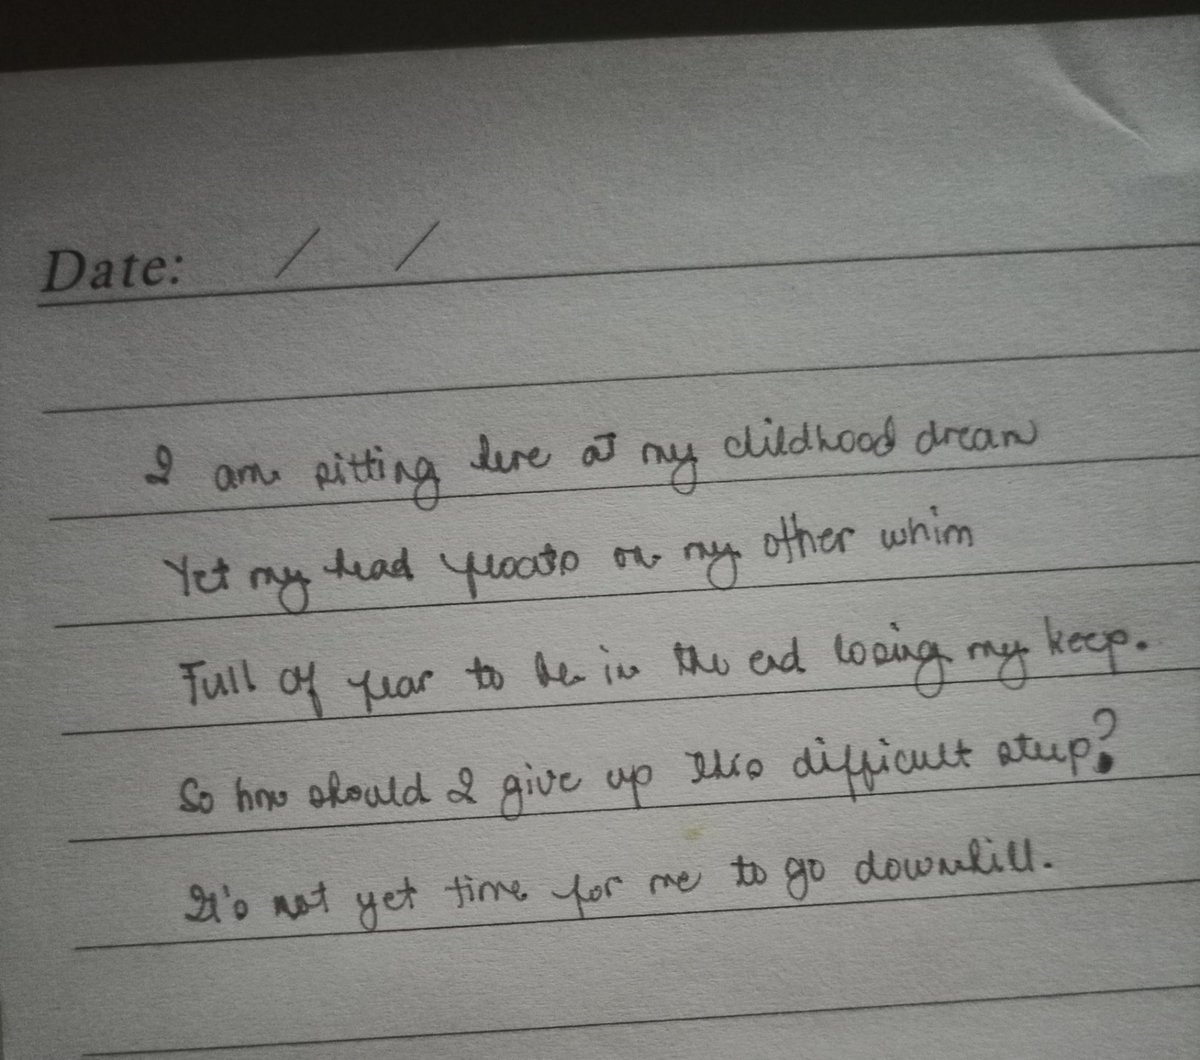 Date: / /
I am sitting here at my childhood dream
Yet my head floats on my other whim
Full of fear to be in the end losing my keep.
So how should I give up this difficult steep?
It's not yet time for me to go downhill.